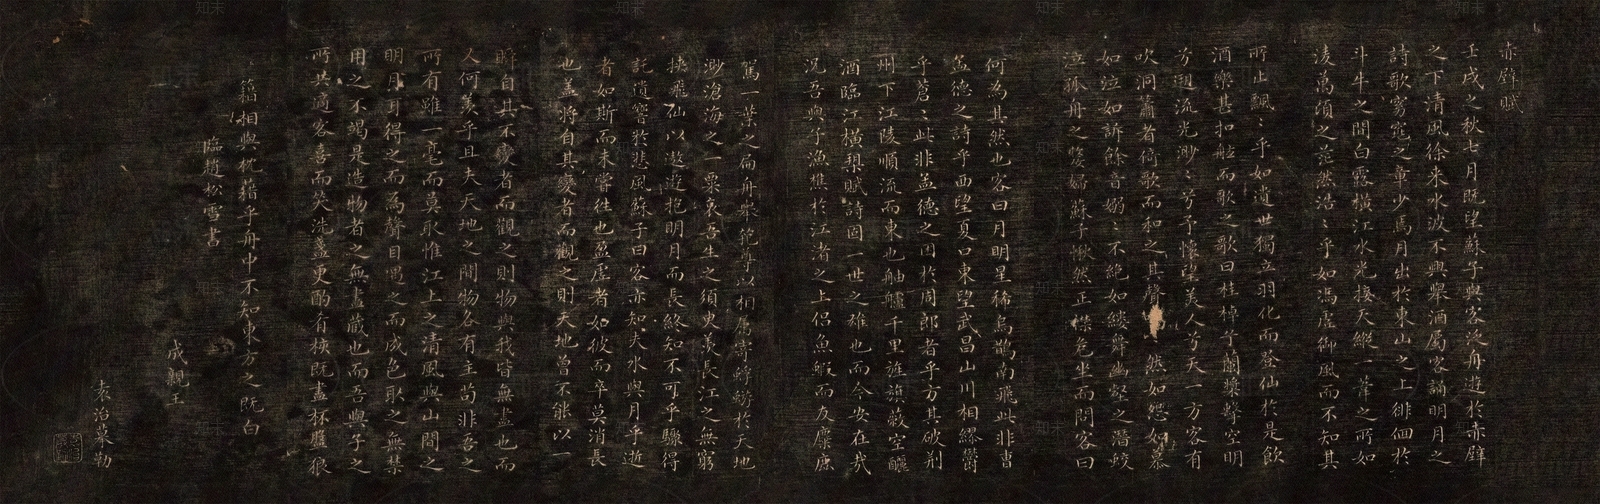 赤壁賦
壬戌之秋七月既望蘇子與客泛舟遊於赤壁
之下清風徐來水波不興舉酒屬客誦明月之
詩歌窈窕之章少焉月出於東山之上徘徊於
斗牛之間白露橫江水光接天縱一葦之所如
淩萬頃之茫然浩〻乎如馮虛御風而不知其
所止飄〻乎如遺世獨立羽化而登仙於是飲
酒樂甚扣舷而歌之歌曰桂棹兮蘭槳擊空明
兮溯流光渺〻兮予懷望美人兮天一方客有
吹洞簫者倚歌而和之其聲 然如怨如慕
如泣如訴餘音嫋〻不絕如縷舞幽壑之潛蛟
泣孤舟之嫠婦蘇子愀然正襟危坐而問客曰
何為其然也客曰月明星稀烏鵲南飛此非曹
孟德之詩乎西望夏口東望武昌山川相繆鬱
乎蒼〻此非孟德之困於周郎者乎方其破荊
州下江陵順流而東也舳艫千里旌旗蔽空釃
酒臨江橫槊賦詩固一世之雄也而今安在哉
況吾與子漁樵於江渚之上侶魚蝦而友麋鹿
駕一葉之扁舟舉匏尊以相屬寄蜉蝣於天地
渺滄海之一粟哀吾生之須臾羨長江之無窮
挾飛仙以遨遊抱明月而長終知不可乎驟得
託遺響於悲風蘇子曰客亦知夫水與月乎逝
者如斯而未嘗往也盈虛者如彼而卒莫消長
也蓋將自其變者而觀之則天地曾不能以一
瞬自其不變者而觀之則物與我皆無盡也而
又何羨乎且夫天地之間物各有主苟非吾之
所有雖一毫而莫取惟江上之清風與山間之
明月耳得之而為聲目遇之而成色取之無禁
用之不竭是造物者之無盡藏也而吾與子之
所共適客喜而笑洗盞更酌肴核既盡杯盤狼
籍相與枕藉乎舟中不知東方之既白
臨趙松雪書
成親王
袁治摹勒